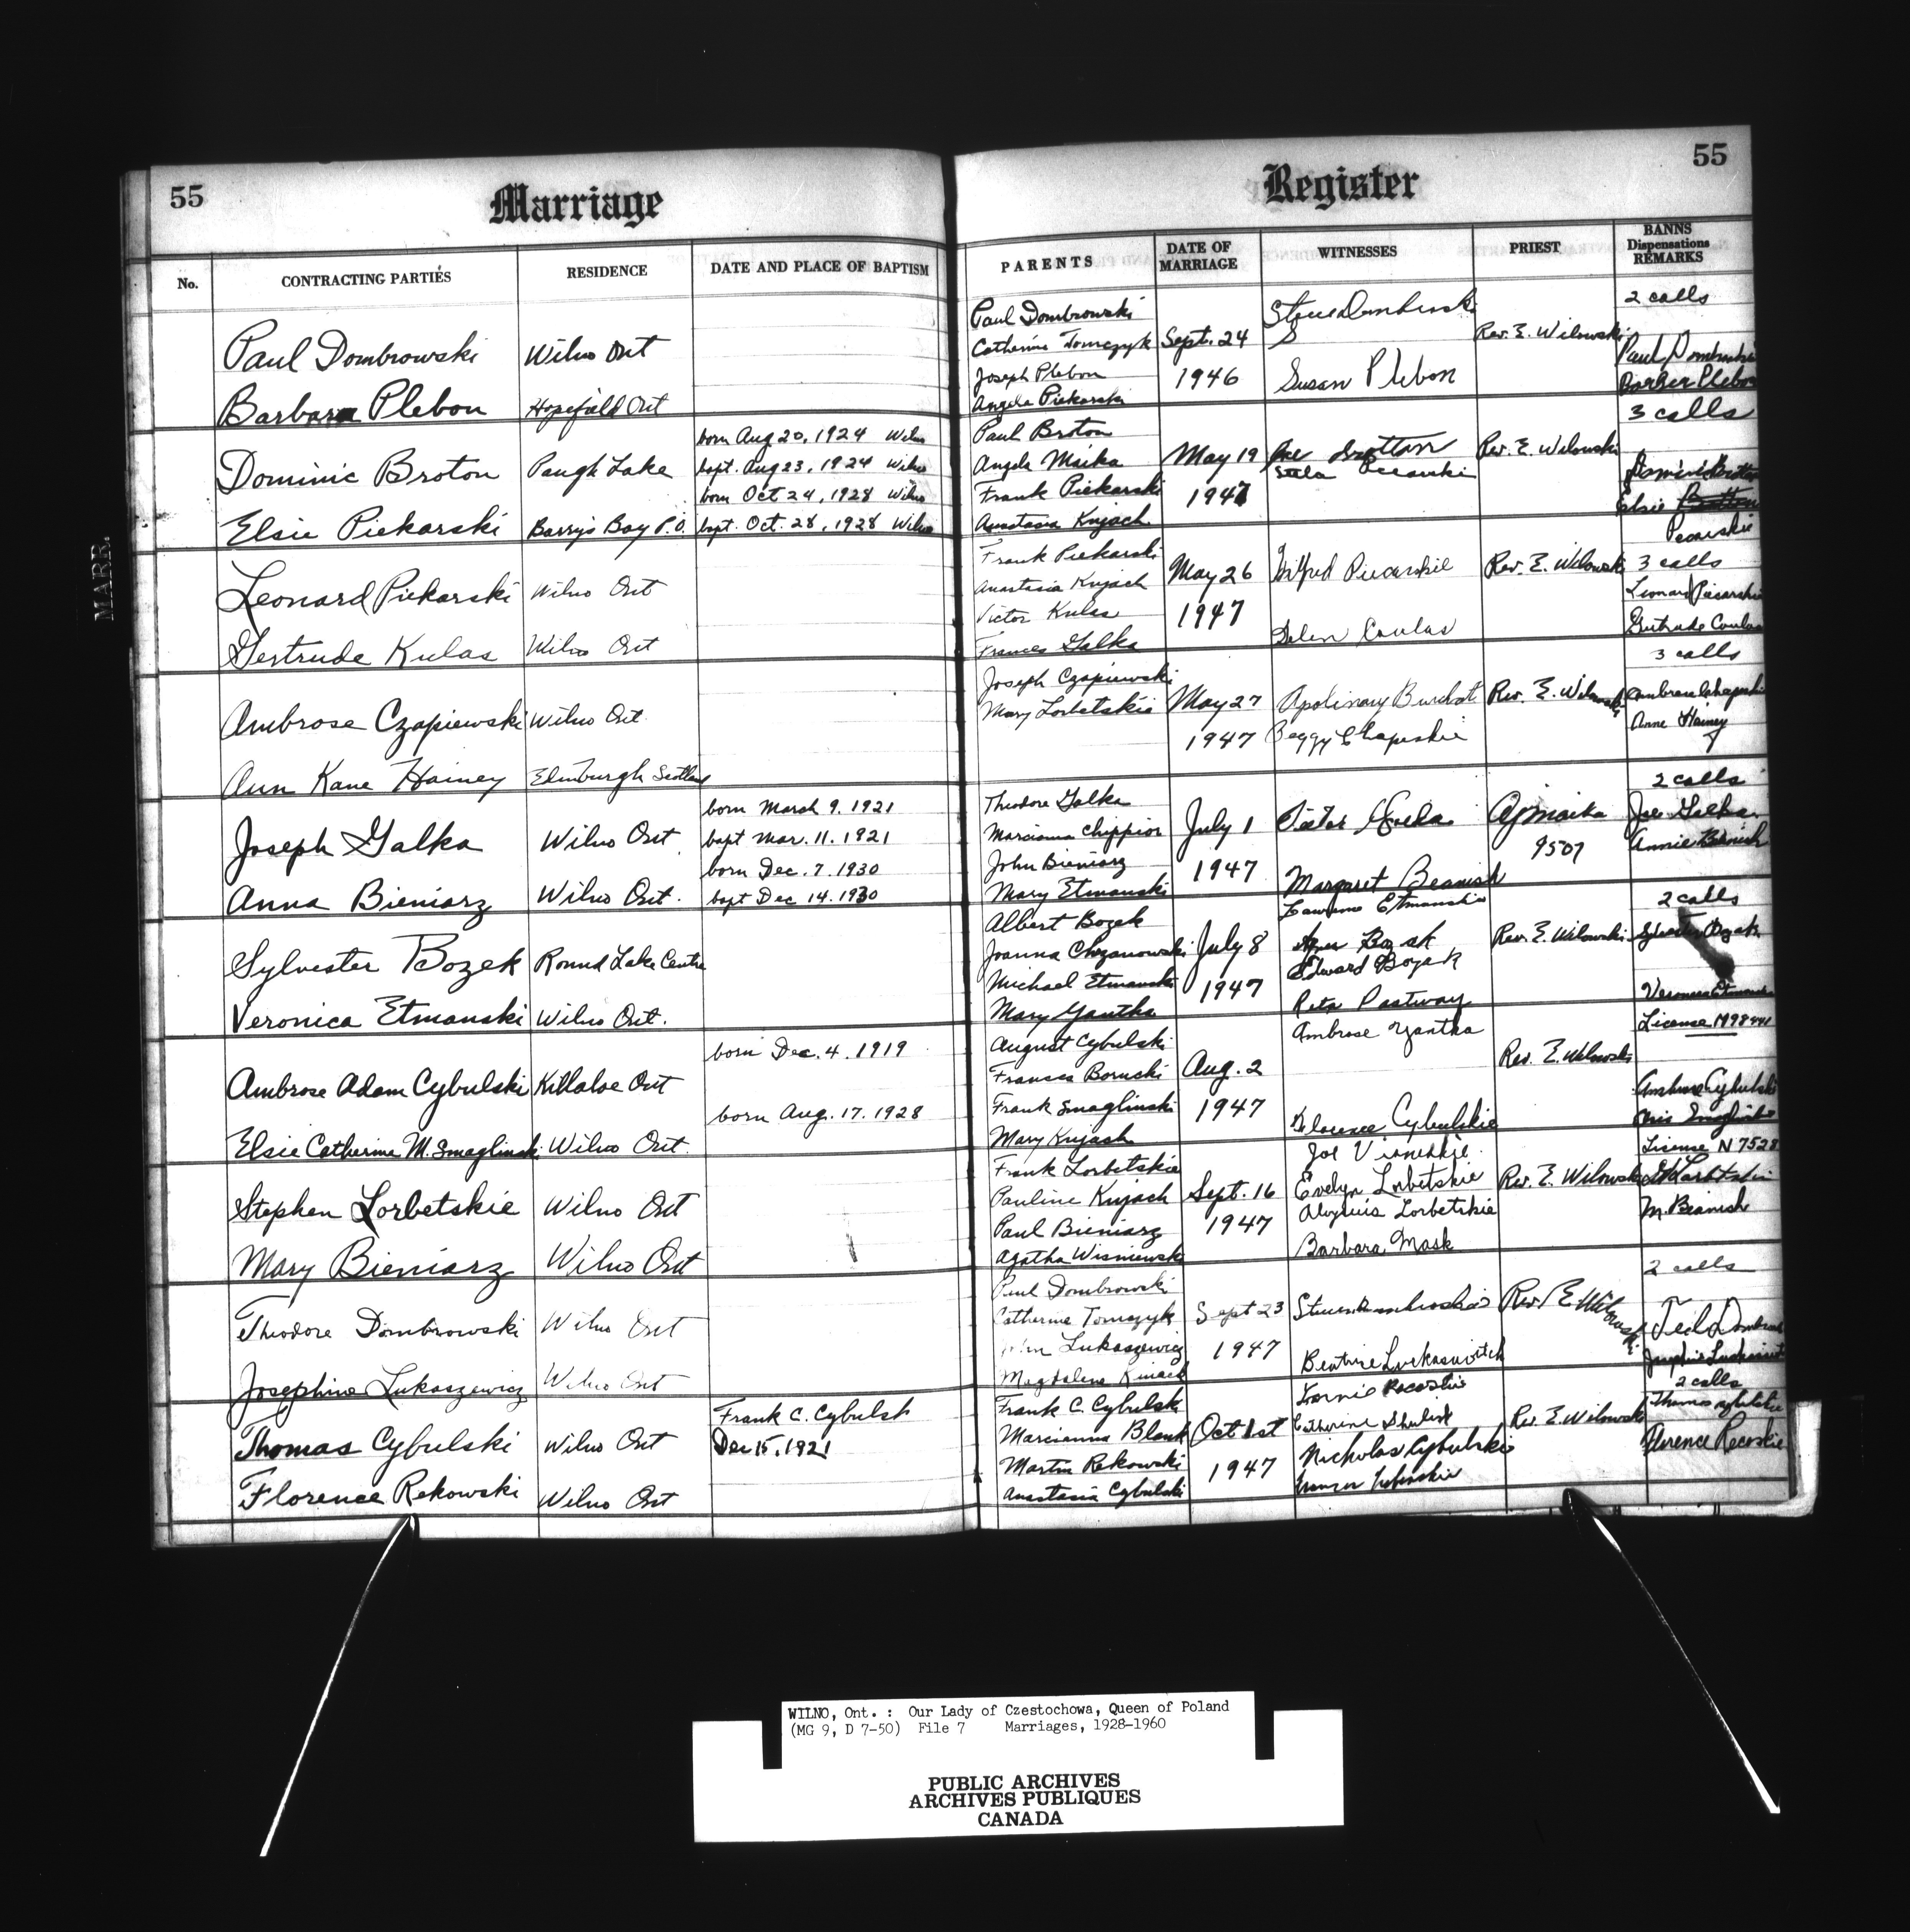 MARR.
55
Marriage
Register
55
No.
CONTRACTING PARTIES
RESIDENCE
DATE AND PLACE OF BAPTISM
PARENTS
DATE OF MARRIAGE
WITNESSES
PRIEST
BANNS Dispensations REMARKS
Paul Dombrowski
Wilno Ont
Barbara Plebon
Hopefield Ont
Paul Dombrowski
Catherine Tomczyk
Joseph Plebon
Angela Piekarski
Sept. 24
1946
Susan Plebon
Rev. E. Wilowski
2 calls
Dominic Broton
Paugh Lake
Elsie Piekarski
Barry's Bay P.O.
born Aug 20, 1924 Wilno
bapt. Aug 23, 1924 Wilno
born Oct 24, 1928 Wilno
bapt. Oct. 28, 1928 Wilno
Paul Broton
Angela Maika
Frank Piekarski
Anastasia Knjach
May 19
1947
Rev. E. Wilowski
3 calls
Leonard Piekarski
Wilno Ont
Gertrude Kulas
Wilno Ont
Frank Piekarski
Anastasia Knjach
Victor Kulas
Frances Galka
May 26
1947
Wilfred Piecarskie
Helen Coulas
Rev. E. Wilowski
3 calls
Gertrude Coulas
Ambrose Czapiewski
Wilno Ont.
Ann Kane Hainey
Edinburgh Scotland
Joseph Czapiewski
Mary Lorbetskie
May 27
1947
Apolinary Burchat
Peggy Chapeskie
Rev. E. Wilowski
3 calls
Anne Hainey
Joseph Galka
Wilno Ont.
Anna Bieniarz
Wilno Ont.
born March 9. 1921
bapt Mar. 11. 1921
born Dec. 7. 1930
bapt Dec 14. 1930
Theodore Galka
Marcianna Chippior
John Bieniarz
Mary Etmanski
July 1
1947
Margaret Beanish
AJ Maika
9507
2 calls
Joe Galka
Sylvester Bozek
Round Lake Centre
Veronica Etmanski
Wilno Ont.
Albert Bozek
Joanna Chrzanowski
Michael Etmanski
Mary Yantha
July 8
1947
Lawrence Etmanskie
Edward Bozak
Rita Pastway
Ambrose Yantha
Rev. E. Wilowski
2 calls
Ambrose Adam Cybulski
Killaloe Ont
Elsie Catherine M. Smaglinski
Wilno Ont.
born Dec. 4. 1919
born Aug. 17. 1928
August Cybulski
Frances Bornski
Frank Smaglinski
Mary Knjach
Aug. 2
1947
Florence Cybulskie
Rev. E. Wilowski
License N98941
Ambrose Cybulski
Stephen Lorbetskie
Wilno Ont
Mary Bieniarz
Wilno Ont
Frank Lorbetskie
Pauline Knjach
Paul Bieniarz
Agatha Wisniewski
Sept. 16
1947
Evelyn Lorbetskie
Aloysius Lorbetskie
Barbara Mask
Rev. E. Wilowski
License N 7528
M. Bianish
Theodore Dombrowski
Wilno Ont
Josephine Lukaszewicz
Wilno Ont
Paul Dombrowski
Catherine Tomczyk
John Lukaszewicz
Magdalena Kniach
Sept 23
1947
Beatrice Luckasavitch
Rev. E. Wilowski
2 calls
Thomas Cybulski
Wilno Ont
Florence Rekowski
Wilno Ont
Frank C. Cybulsk
Dec 15, 1921
Frank C. Cybulski
Marcianna Blank
Martin Rekowski
Anastasia Cybulski
Oct 1st
1947
Nicholas Cybulskie
Rev. E. Wilowski
2 calls
Florence Recoskie
WILNO, Ont. : Our Lady of Czestochowa, Queen of Poland
(MG 9, D 7-50) File 7 Marriages, 1928-1960
PUBLIC ARCHIVES
ARCHIVES PUBLIQUES
CANADA